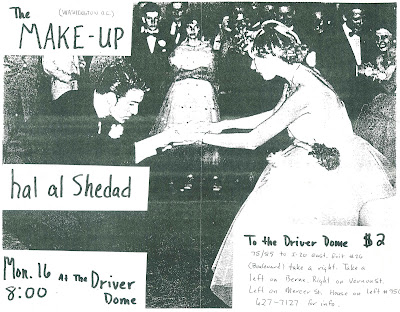 The
(WASHINGTON D.C.)
MAKE-UP
hal al Shedad
Mon. 16 At The Driver
8:00 Dome
To the Driver Dome $2
75/85 to I-20 east. Exit #26
(Boulevard) take a right. Take a
left on Berne. Right on Vernon St.
Left on Mercer St. House on left #950
627-7127 for info.